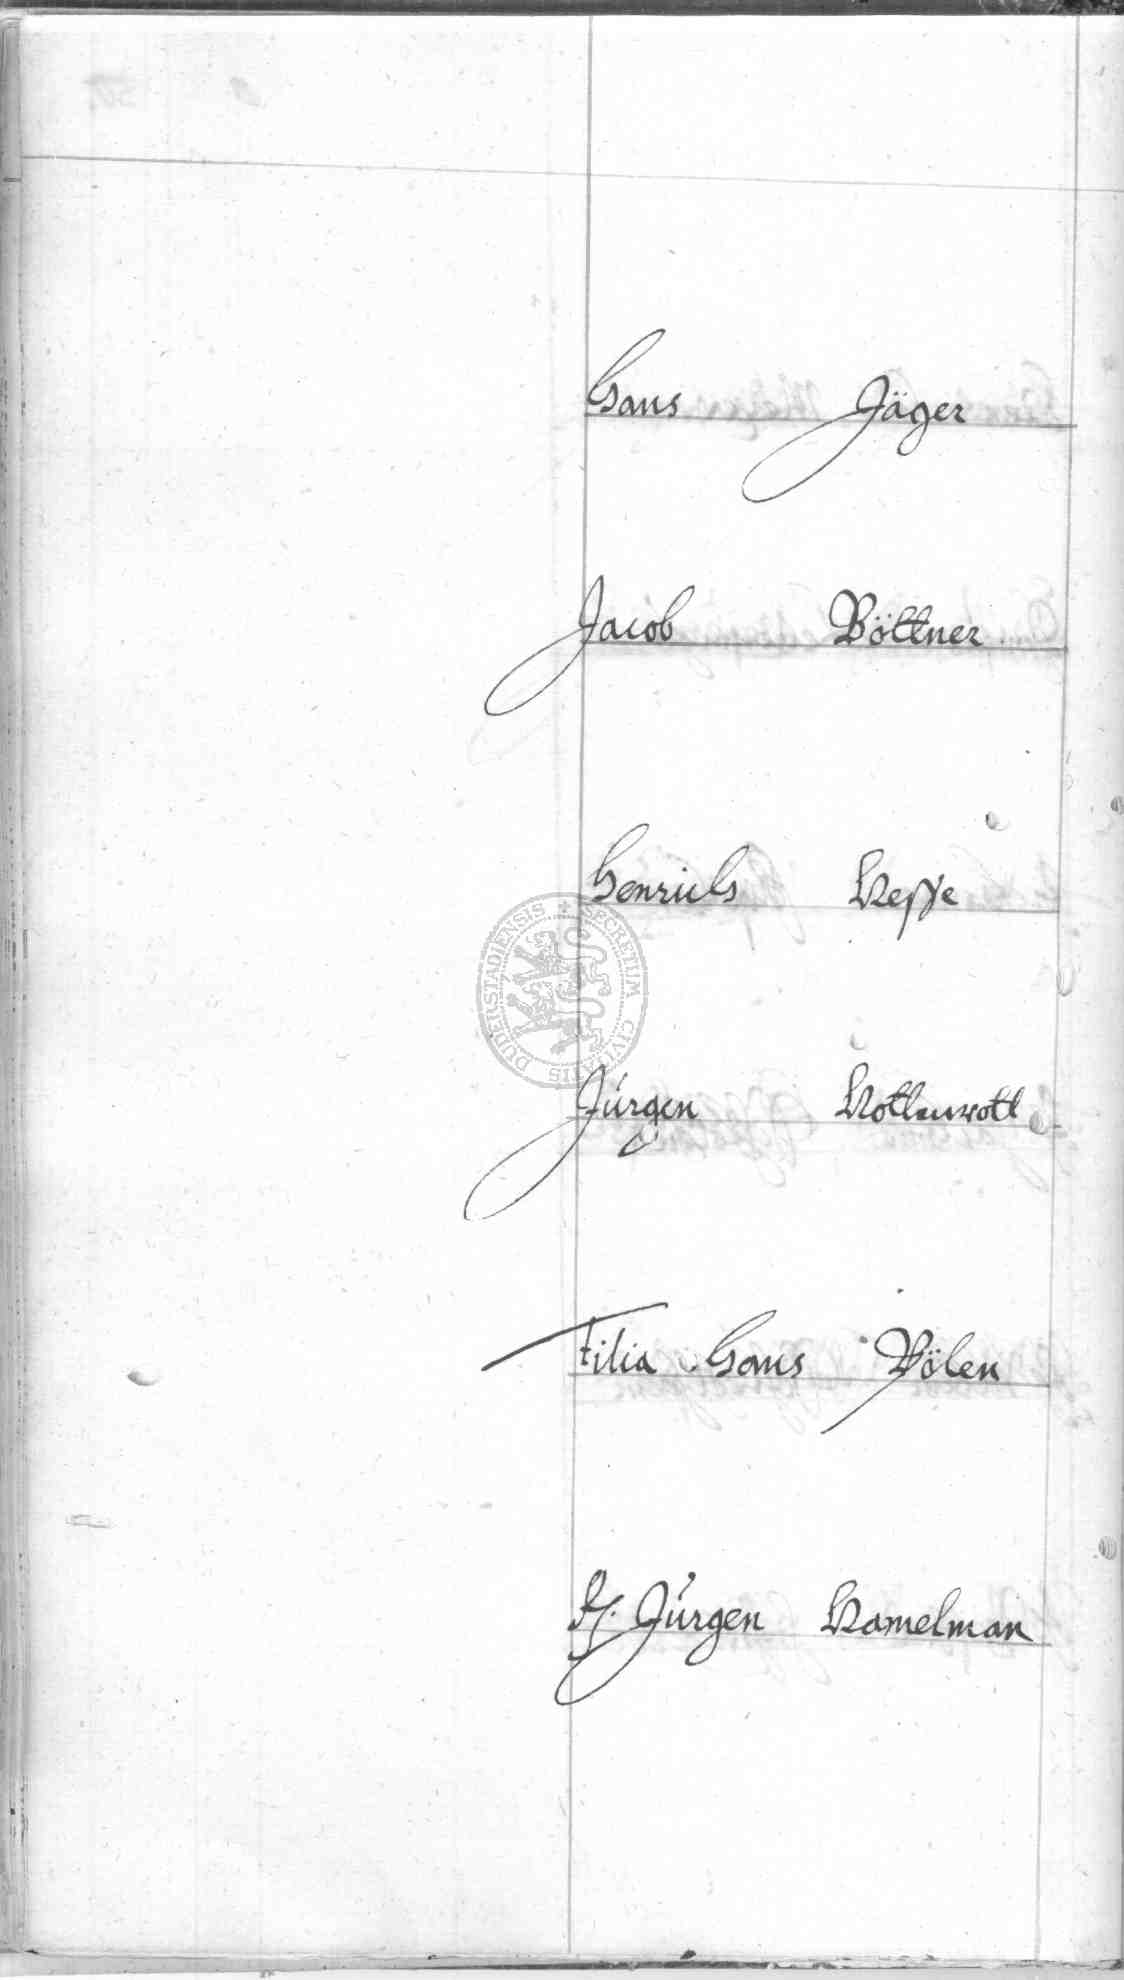 Hans Jäger
Jacob Böttner
Henrich Hesse
Jürgen Hottenrott
Filia Hans
H. Jürgen Hamelman
DUDERSTADIENSIS + SECRETUM CIVITATIS